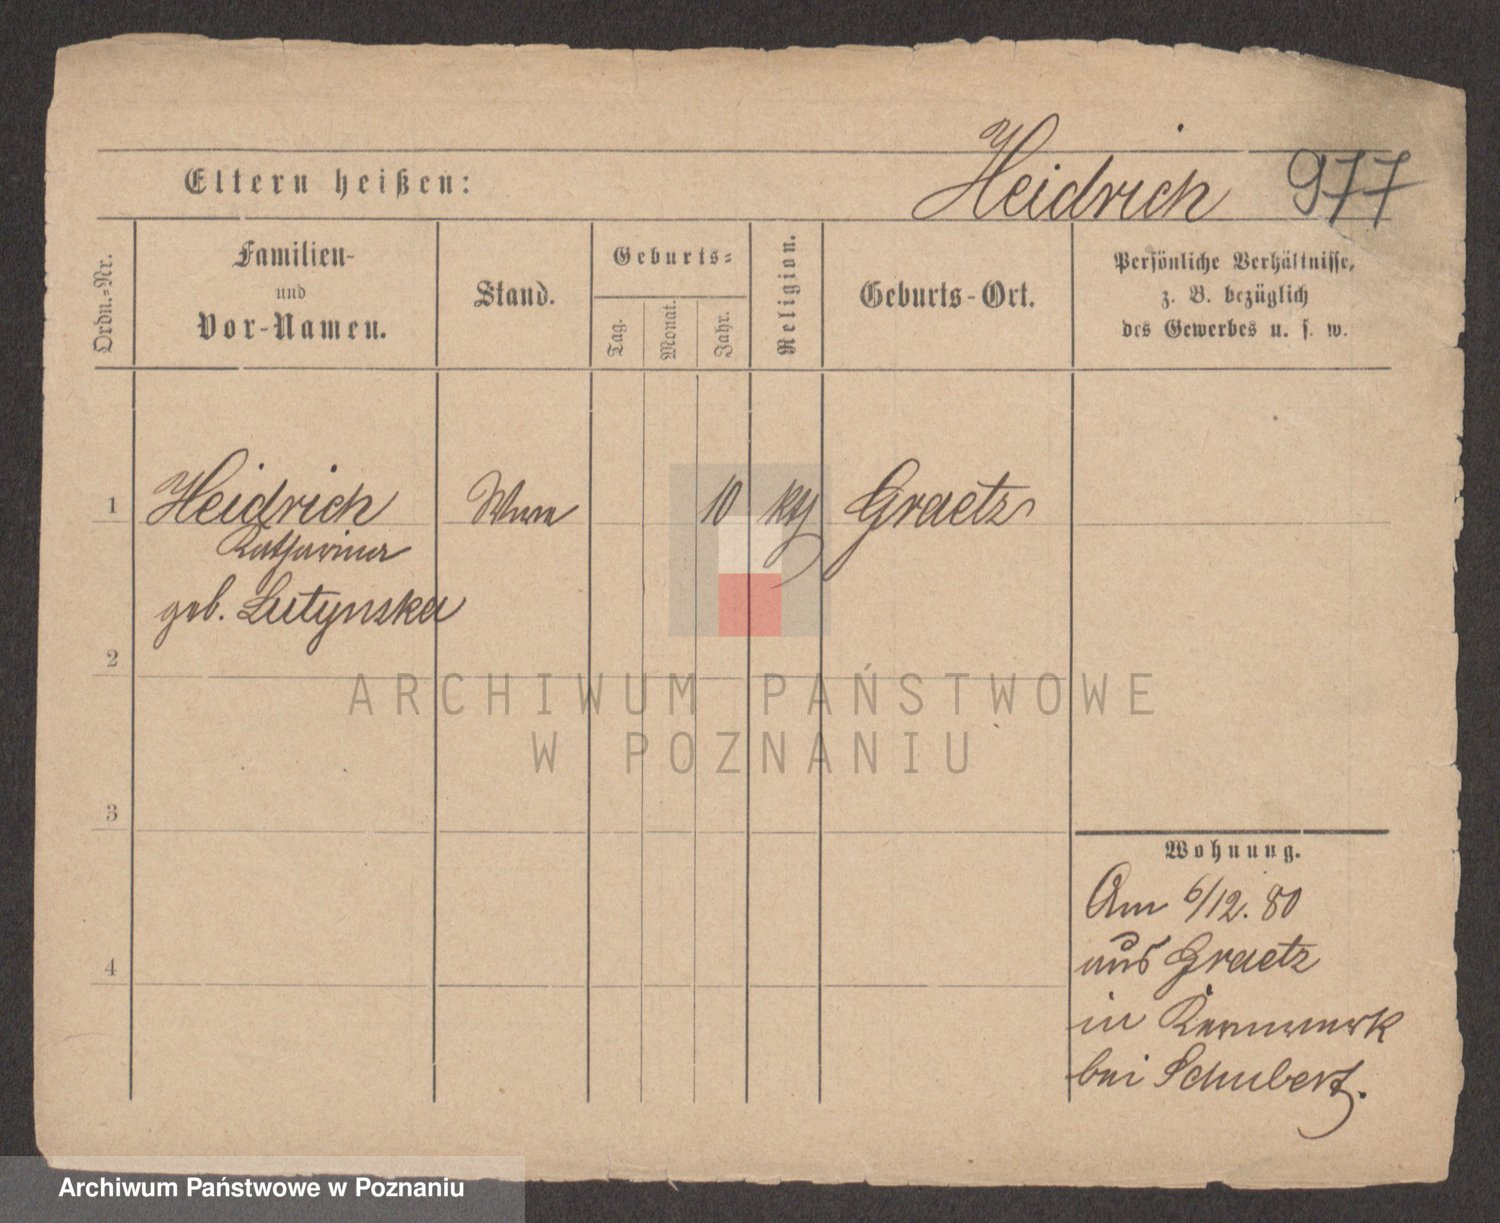 Heidrich 977
Eltern heißen:
Ordn.-Nr.
Familien-
und
Vor-Namen.
Stand.
Geburts-
Tag.
Monat.
Jahr.
Religion.
Geburts-Ort.
Persönliche Verhältnisse,
z. B. bezüglich
des Gewerbes u. s. w.
1 Heidrich 10 Graetz
Katharina
geb. Lutynska
2
ARCHIWUM PAŃSTWOWE
W POZNANIU
3
Wohnung.
Am 6/12. 80
aus Graetz
4
in Kernwerk
bei Schubert.
Archiwum Państwowe w Poznaniu